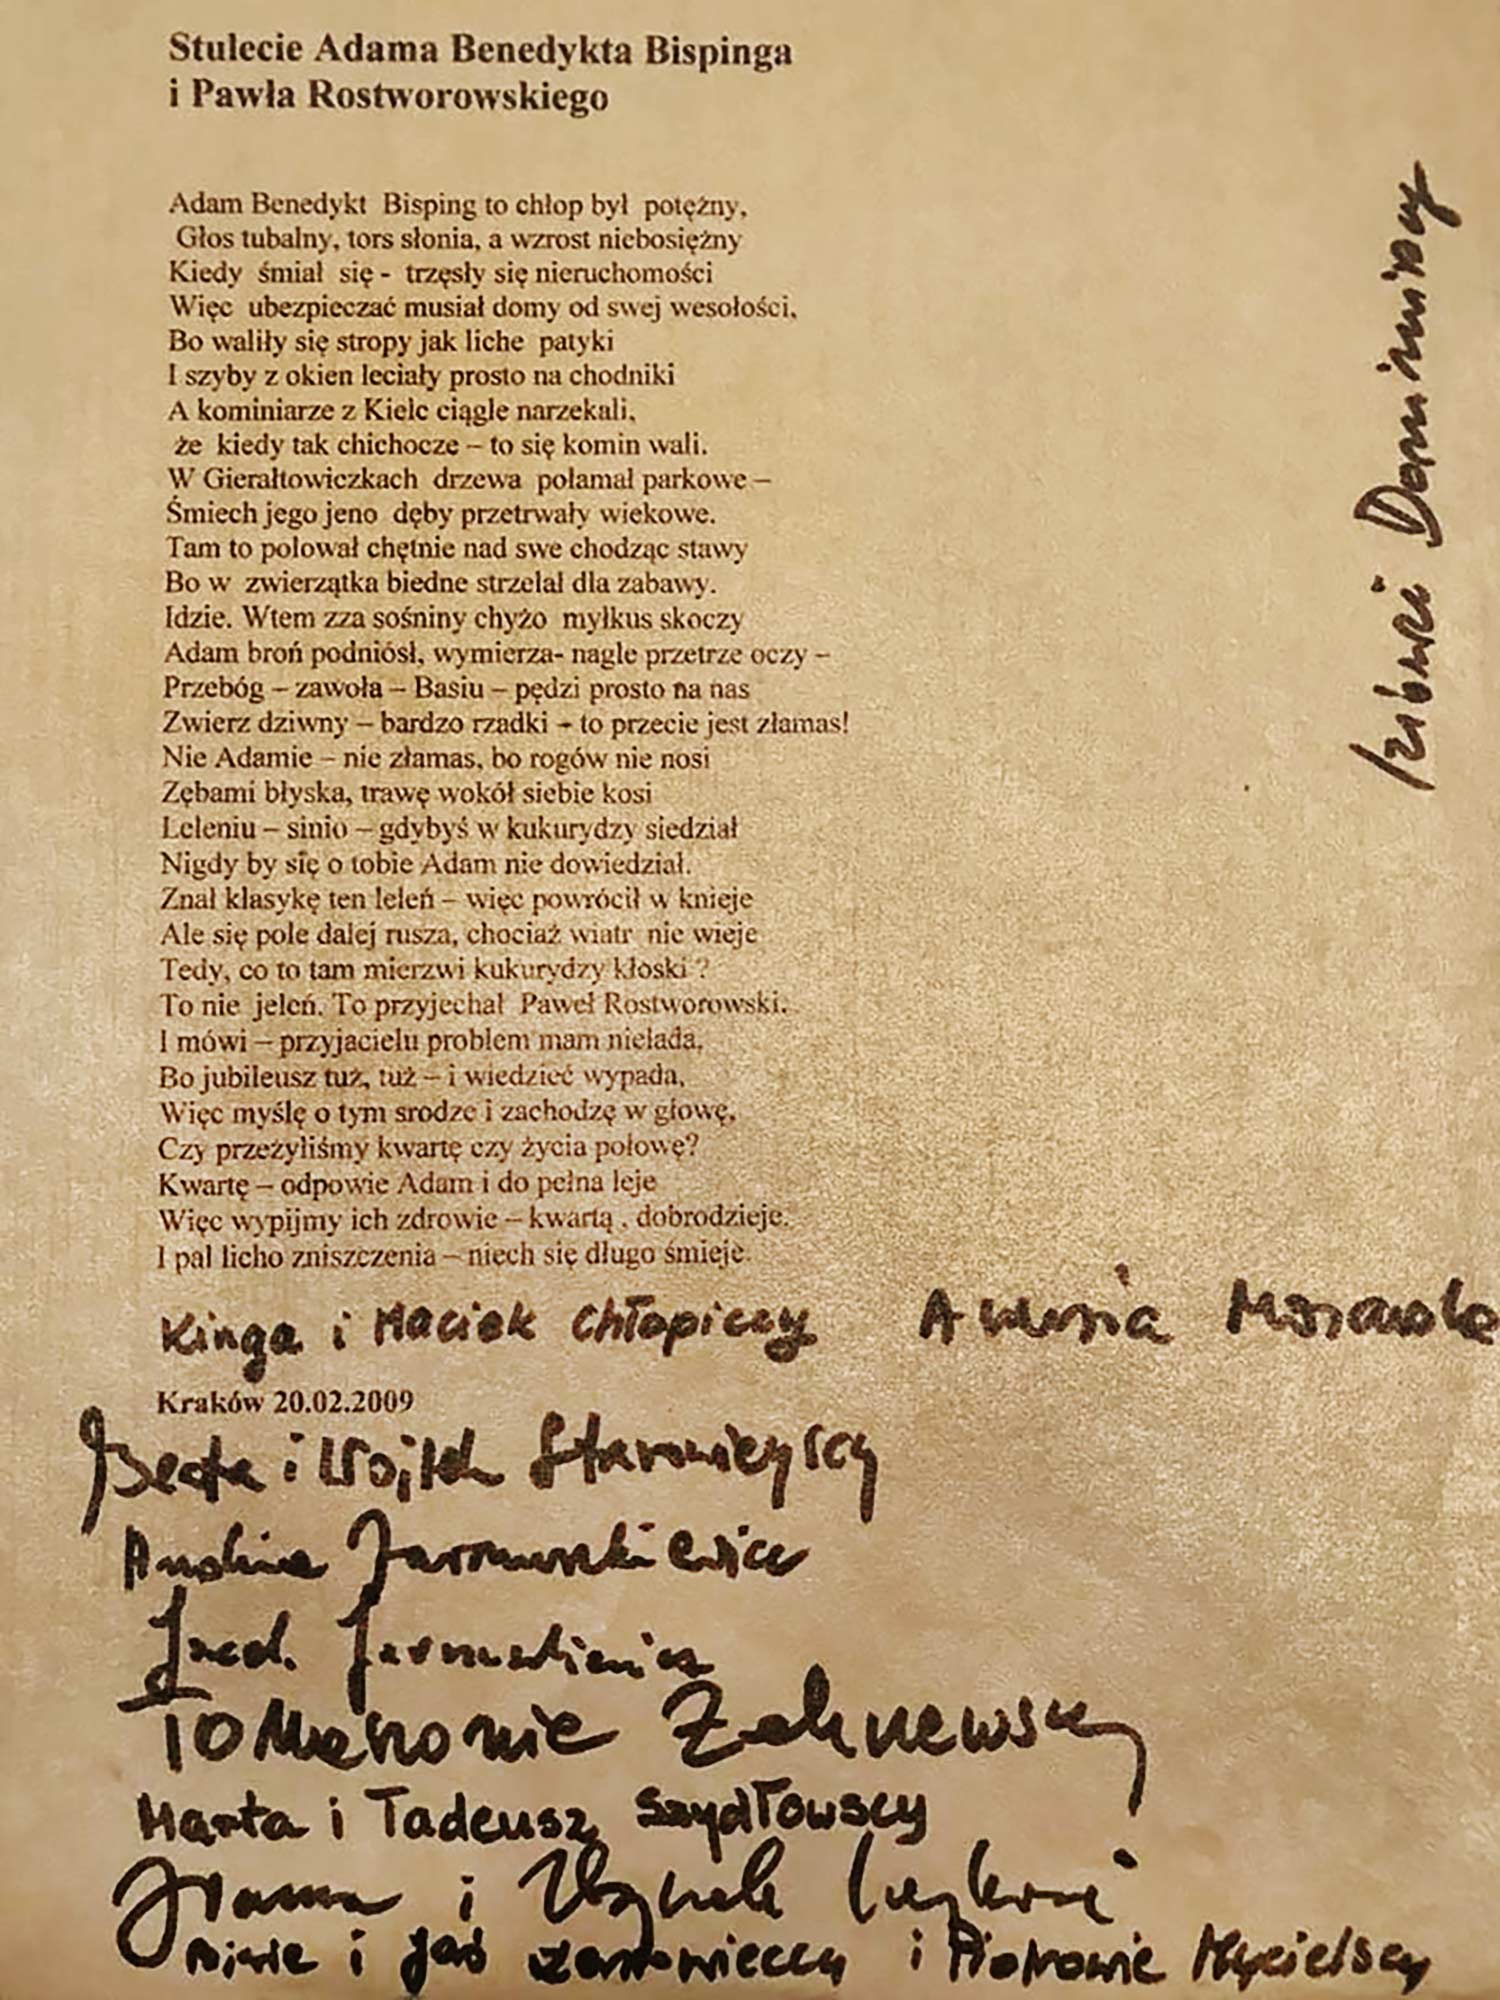 Stulecie Adama Benedykta Bispinga
i Pawła Rostworowskiego
Adam Benedykt Bisping to chłop był potężny,
Głos tubalny, tors słonia, a wzrost niebosiężny
Kiedy śmiał się - trzęsły się nieruchomości
Więc ubezpieczać musiał domy od swej wesołości,
Bo waliły się stropy jak liche patyki
I szyby z okien leciały prosto na chodniki
A kominiarze z Kielc ciągle narzekali,
że kiedy tak chichocze – to się komin wali.
W Gierałtowiczkach drzewa połamał parkowe –
Śmiech jego jeno dęby przetrwały wiekowe.
Tam to polował chętnie nad swe chodząc stawy
Bo w zwierzątka biedne strzelał dla zabawy.
Idzie. Wtem zza sośniny chyżo myłkus skoczy
Adam broń podniósł, wymierza- nagle przetrze oczy –
Przebóg – zawoła – Basiu – pędzi prosto na nas
Zwierz dziwny – bardzo rzadki – to przecie jest złamas!
Nie Adamie – nie złamas, bo rogów nie nosi
Zębami błyska, trawę wokół siebie kosi
Leleniu – sinio – gdybyś w kukurydzy siedział
Nigdy by się o tobie Adam nie dowiedział.
Znał klasykę ten leleń – więc powrócił w knieje
Ale się pole dalej rusza, chociaż wiatr nie wieje
Tedy, co to tam mierzwi kukurydzy kłoski ?
To nie jeleń. To przyjechał Paweł Rostworowski.
I mówi – przyjacielu problem mam nielada,
Bo jubileusz tuż, tuż – i wiedzieć wypada,
Więc myślę o tym srodze i zachodzę w głowę,
Czy przeżyliśmy kwartę czy życia połowę?
Kwartę – odpowie Adam i do pełna leje
Więc wypijmy ich zdrowie – kwartą , dobrodzieje.
I pal licho zniszczenia – niech się długo śmieje.
Kinga i Maciek Chłopiccy
Kraków 20.02.2009
Beata i Wojtek Starowieyscy
Marta i Tadeusz Szydłowscy
i Jaś i Piotrowie Mycielscy